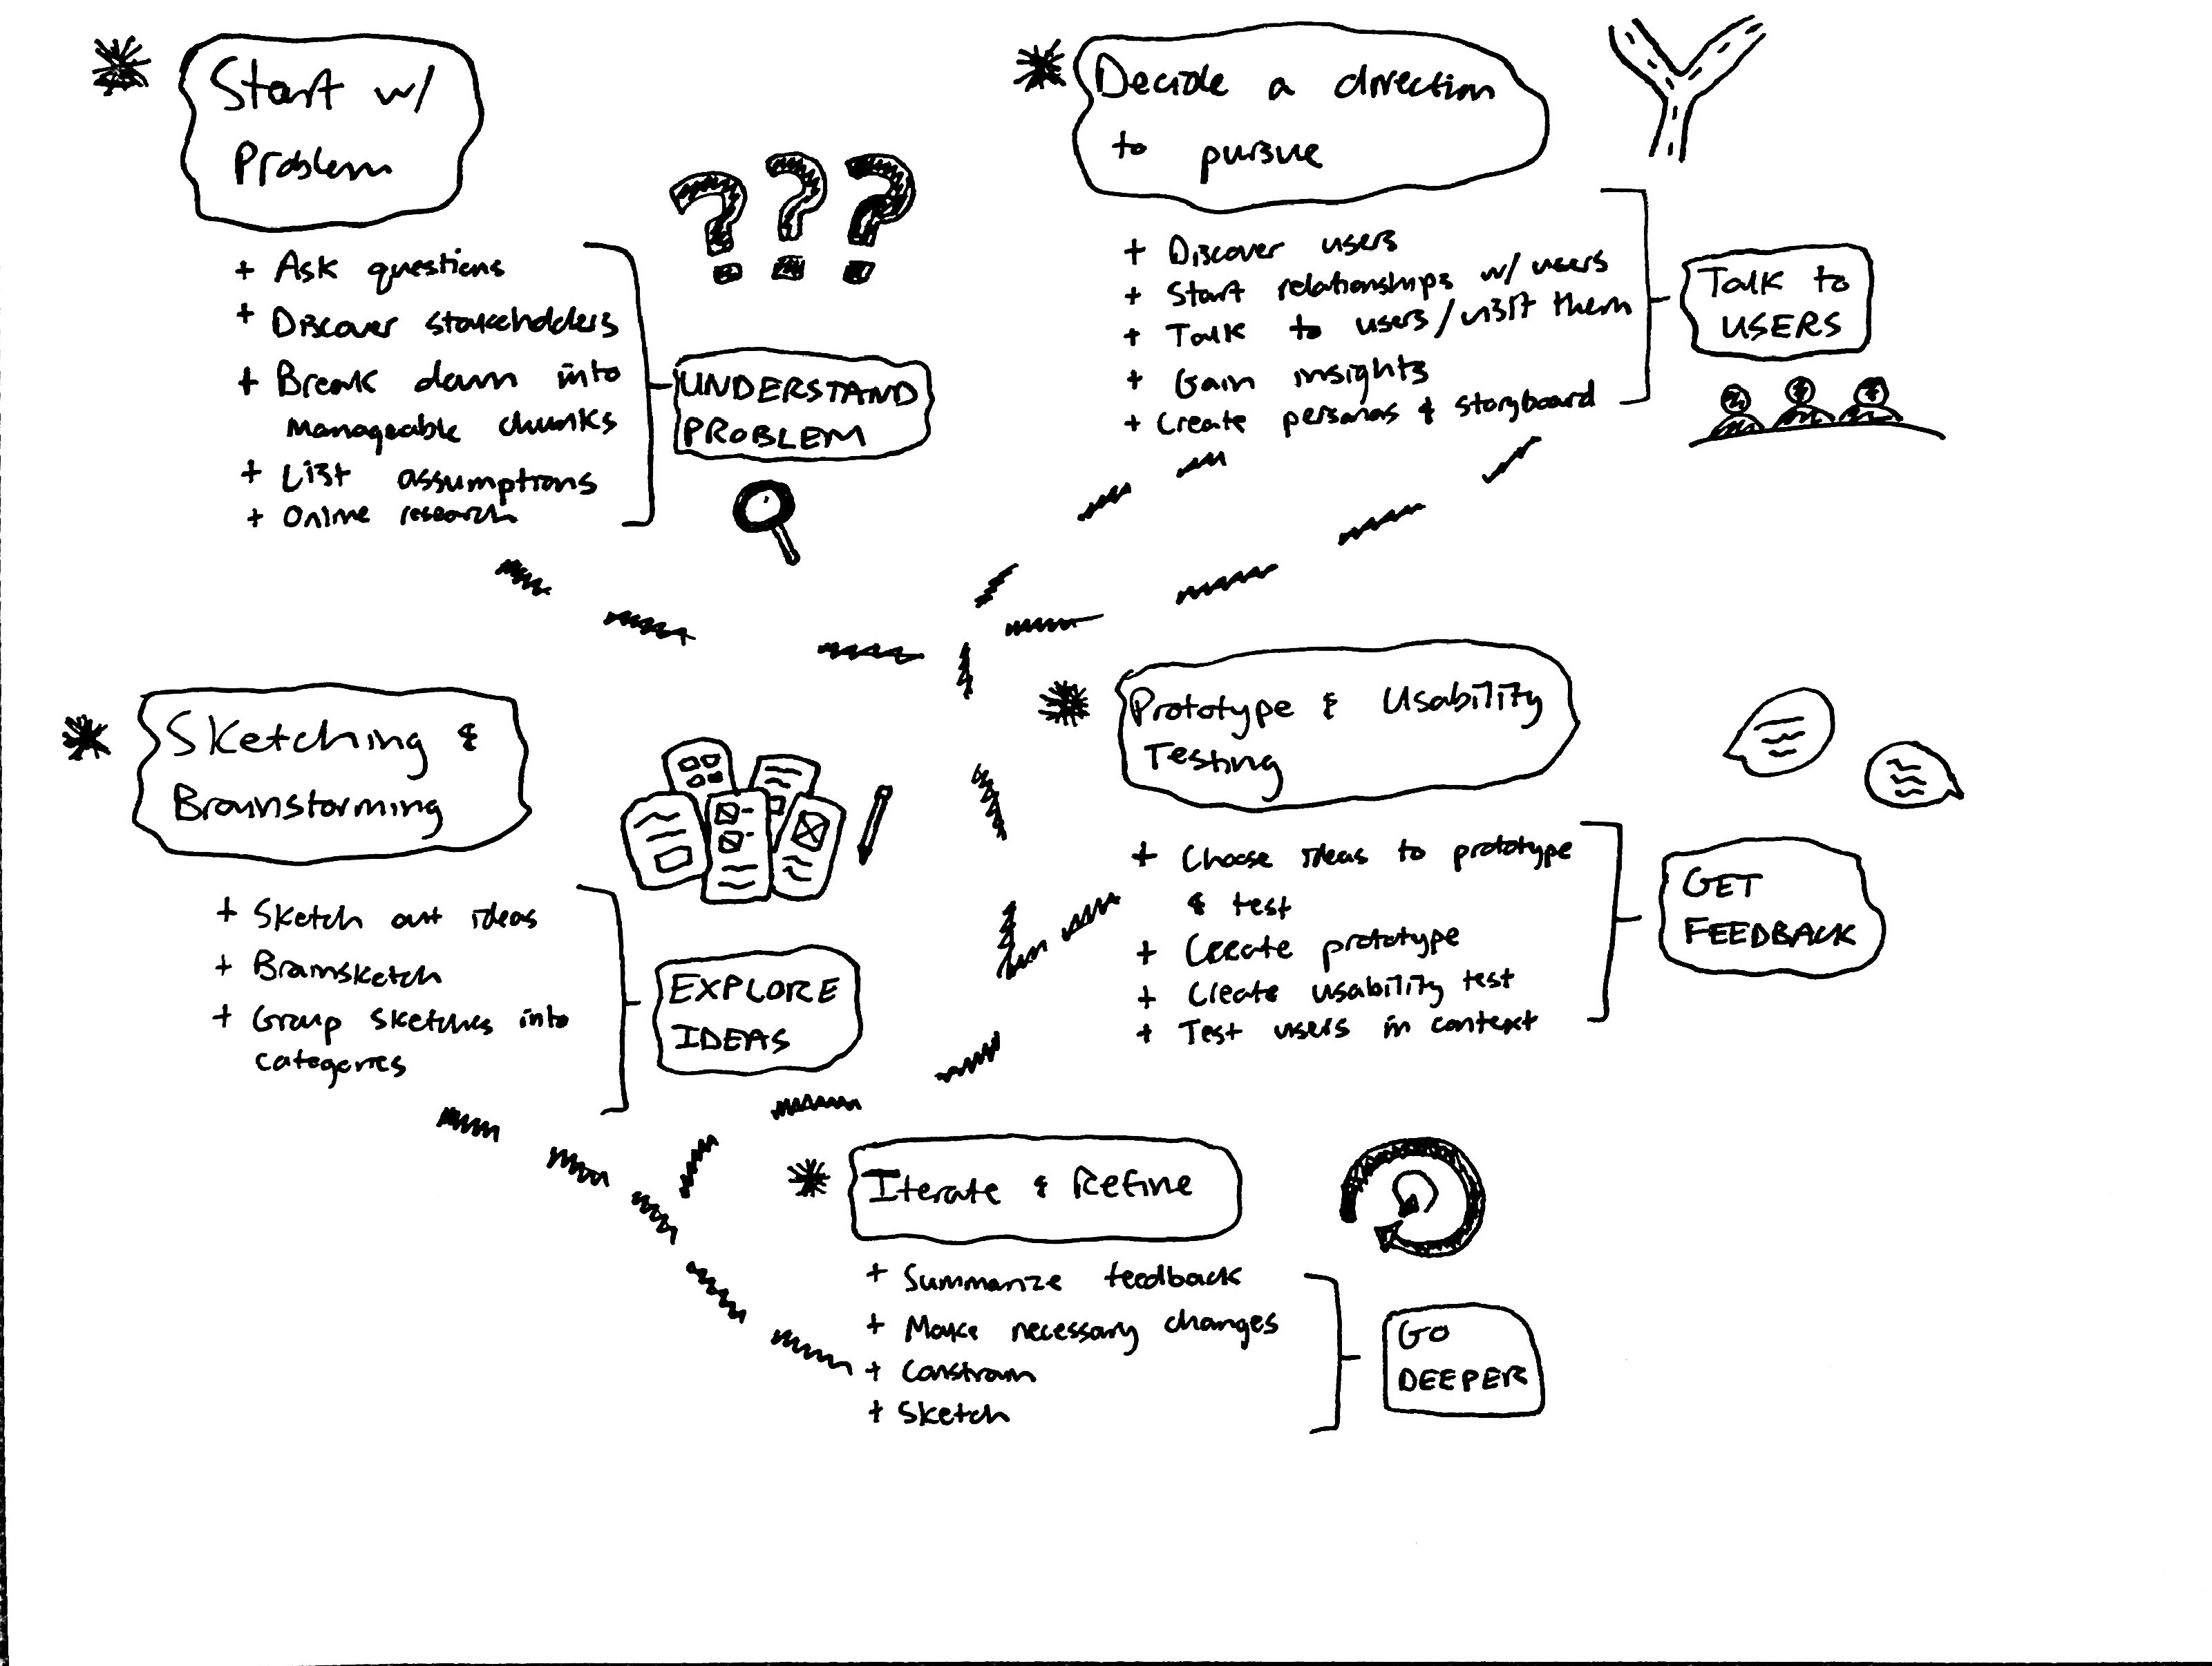 Start w/
Problem
+ Ask questions
+ Discover stakeholders
+ Break down into
manageable chunks
+ List assumptions
+ Online research
UNDERSTAND
PROBLEM
Decide a direction
to pursue
+ Discover users
+ Start relationships w/ users
+ Talk to users/visit them
+ Gain insights
+ Create personas & storyboard
Talk to
USERS
Sketching &
Brainstorming
+ Sketch out ideas
+ Brainsketch
+ Group sketches into
categories
EXPLORE
IDEAS
Prototype & Usability
Testing
+ Choose ideas to prototype
& test
+ Create prototype
+ Create usability test
+ Test users in context
GET
FEEDBACK
Iterate & Refine
+ Summarize feedback
+ Make necessary changes
+ Constrain
+ Sketch
GO
DEEPER